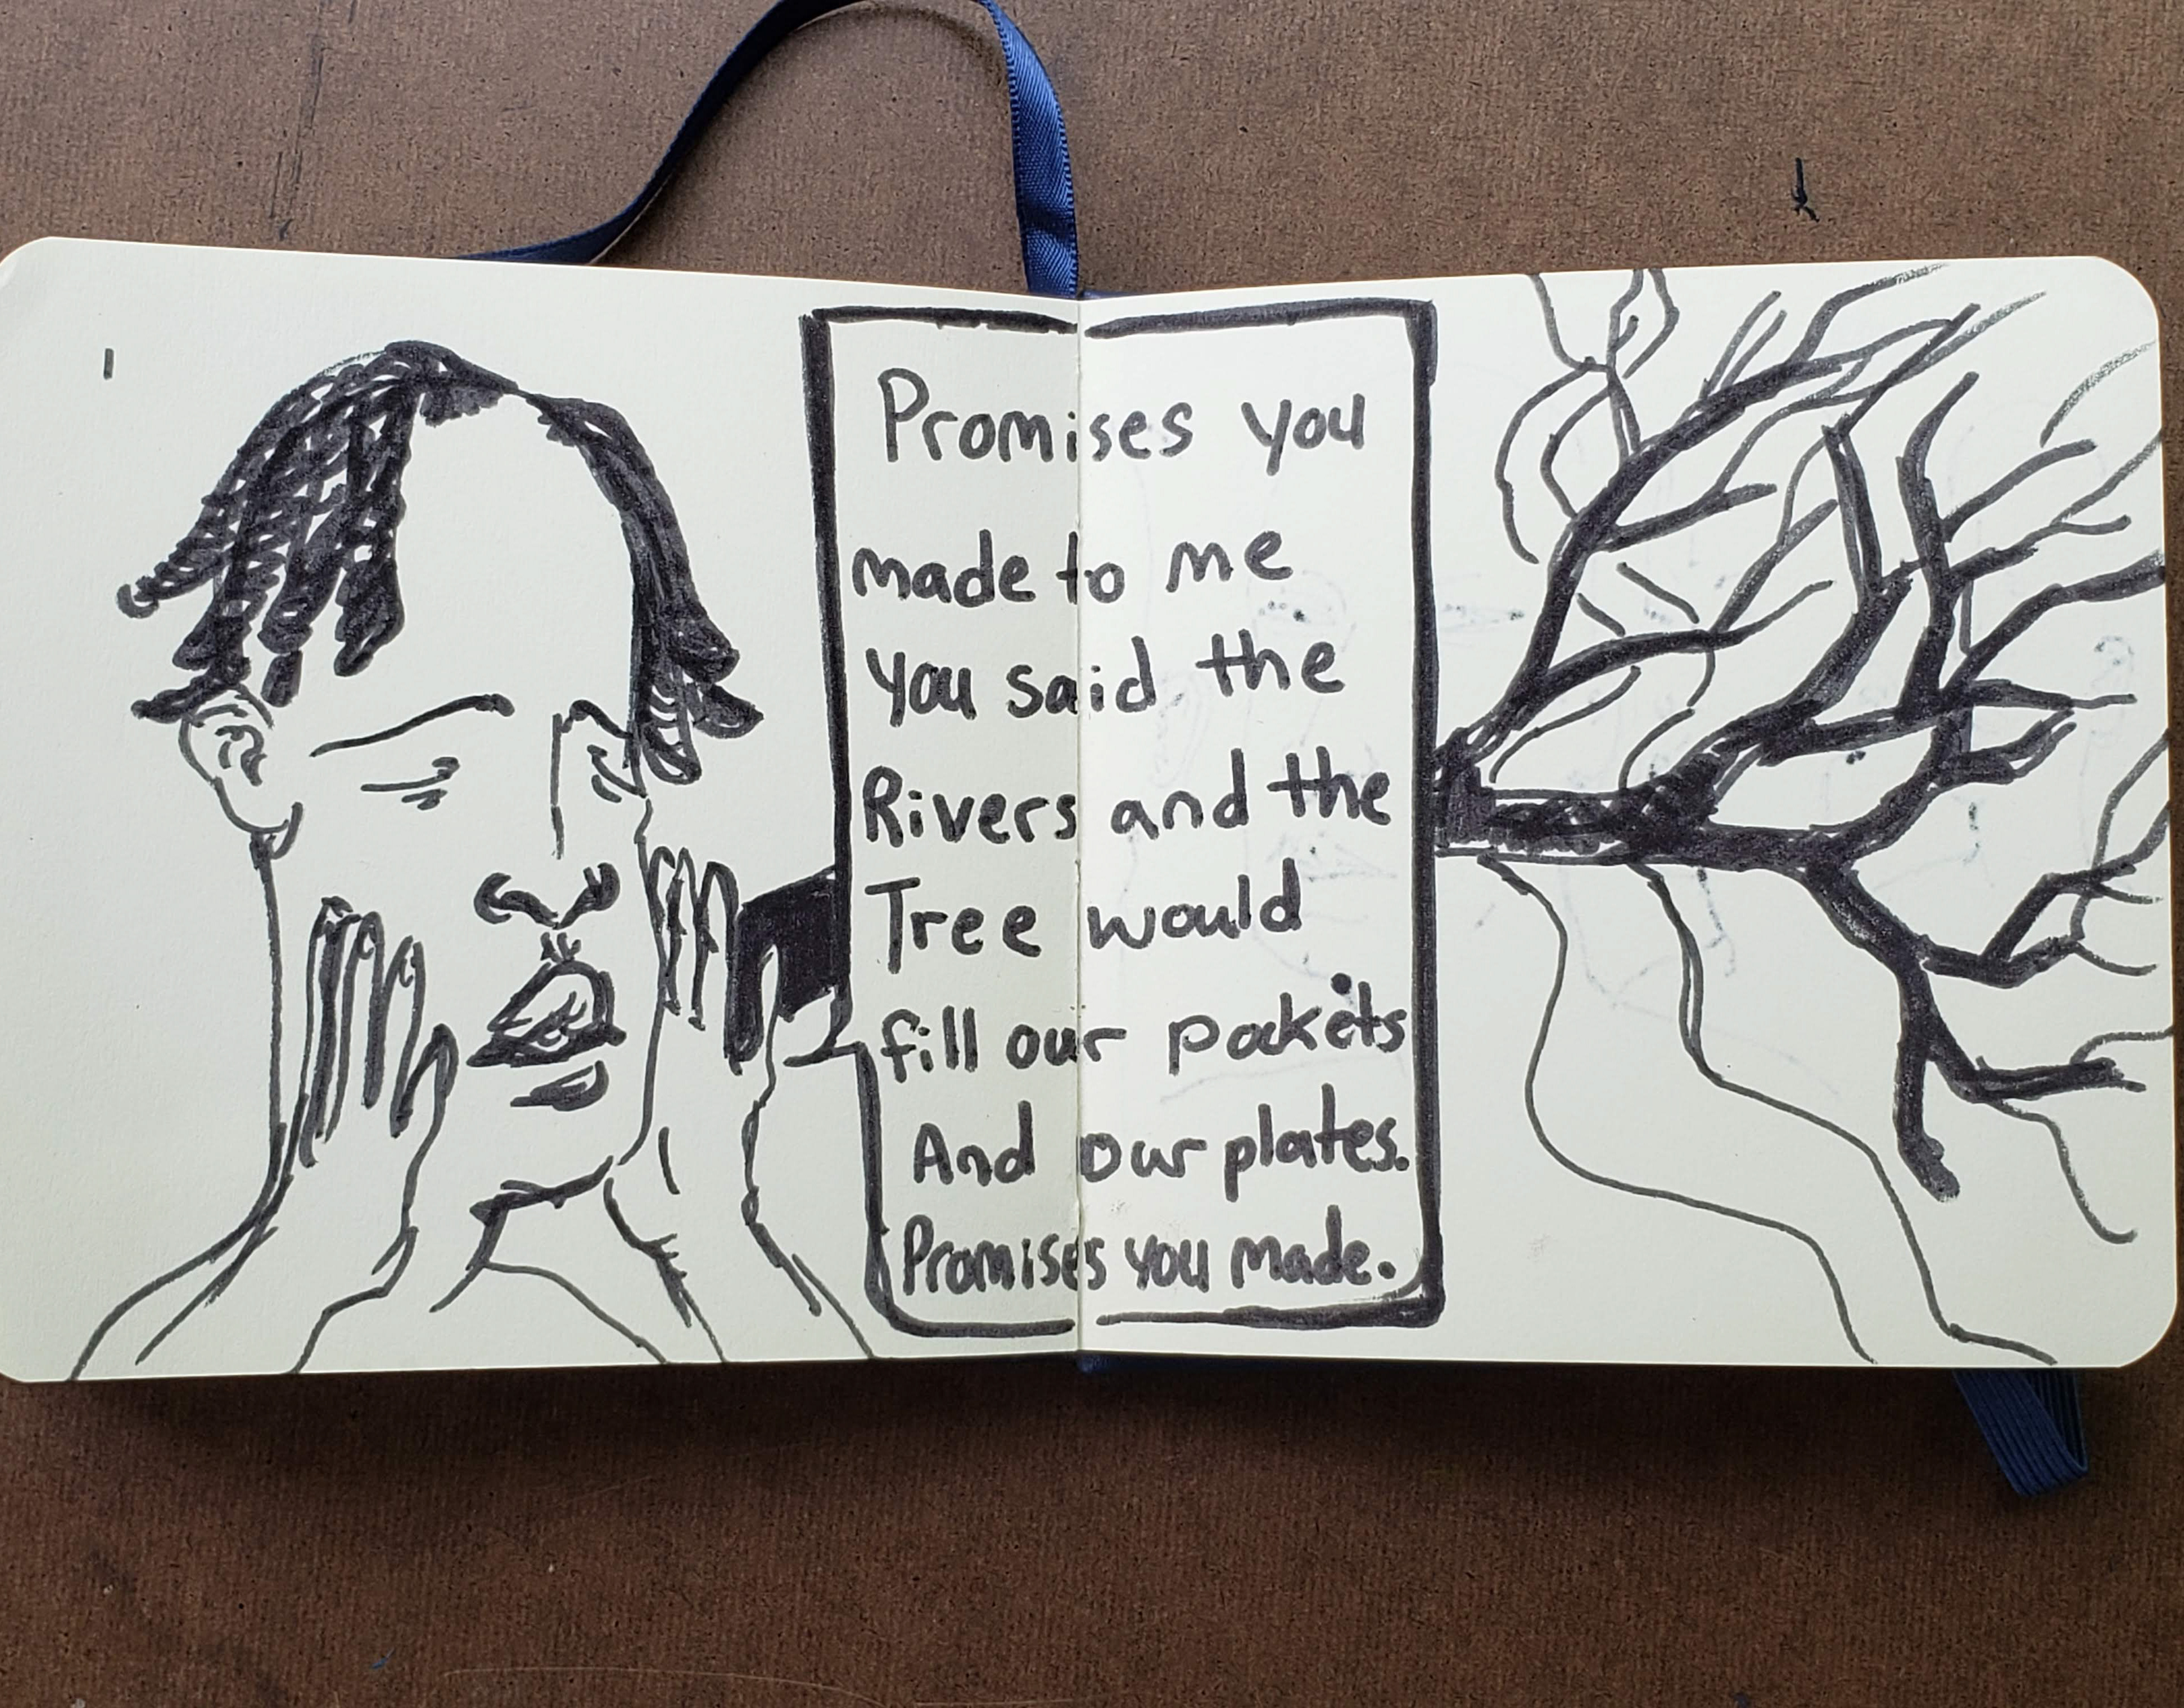 Promises you
made to me
you said the
Rivers and the
Tree would
fill our pockets
And our plates.
Promises you made.